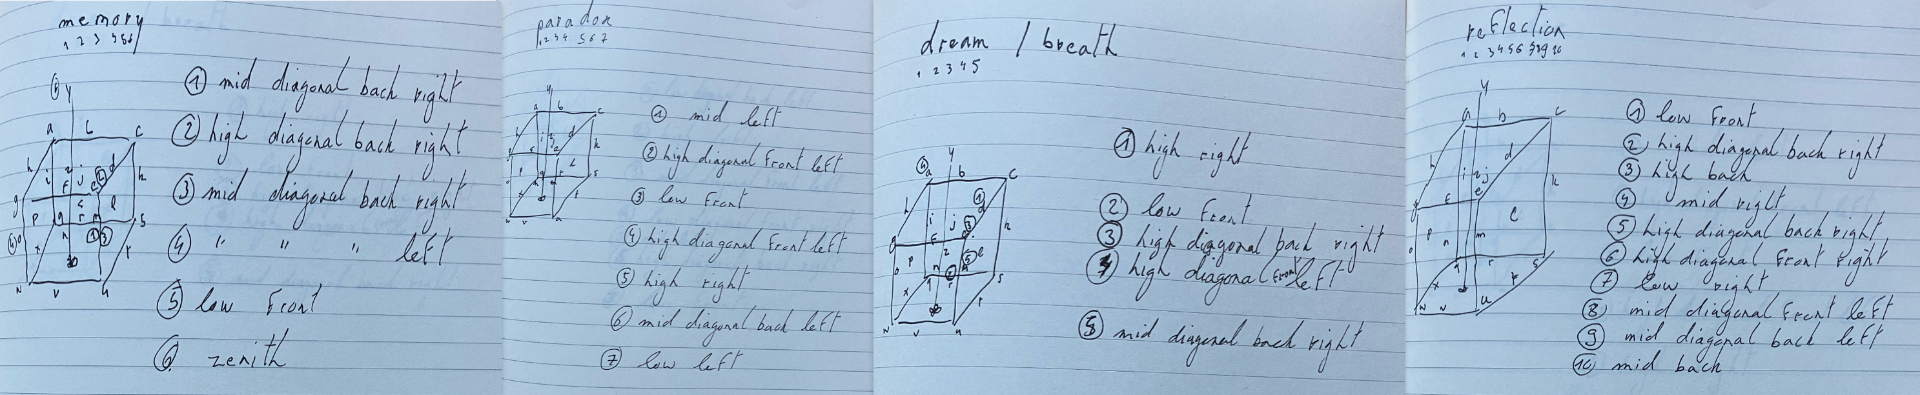 memory
1 2 3 4 5 6
① mid diagonal back right
② high diagonal back right
③ mid diagonal back right
④ " " " left
⑤ low Front
⑥ zenith
paradox
1 2 3 4 5 6 7
① mid left
② high diagonal Front left
③ low Front
④ high diagonal Front left
⑤ high right
⑥ mid diagonal back left
⑦ low left
dream / breath
1 2 3 4 5
① high right
② low Front
③ high diagonal back right
④ high diagonal Front left
⑤ mid diagonal back right
reflection
1 2 3 4 5 6 7 8 9 10
① low Front
② high diagonal back right
③ high back
④ mid right
⑤ high diagonal back right
⑥ high diagonal Front right
⑦ low right
⑧ mid diagonal Front left
⑨ mid diagonal back left
⑩ mid back